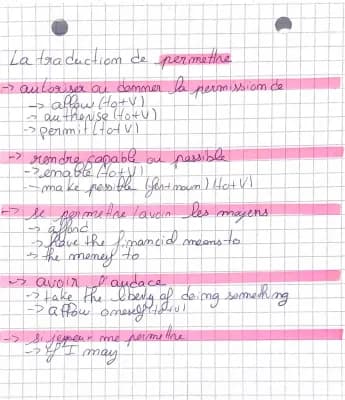 La traduction de permettre
→ autoriser ou donner la permission de
→ allow (to+V)
→ authorise (to+V)
→ permit (to+V)
→ rendre capable ou possible
→ enable (to+V)
→ make possible (for+noun) (to+V)
→ se permettre/avoir les moyens
→ afford
→ have the financial means to
→ the money to
→ avoir l'audace
→ take the liberty of doing something
→ allow oneself (to+V)
→ si je peux me permettre
→ if I may